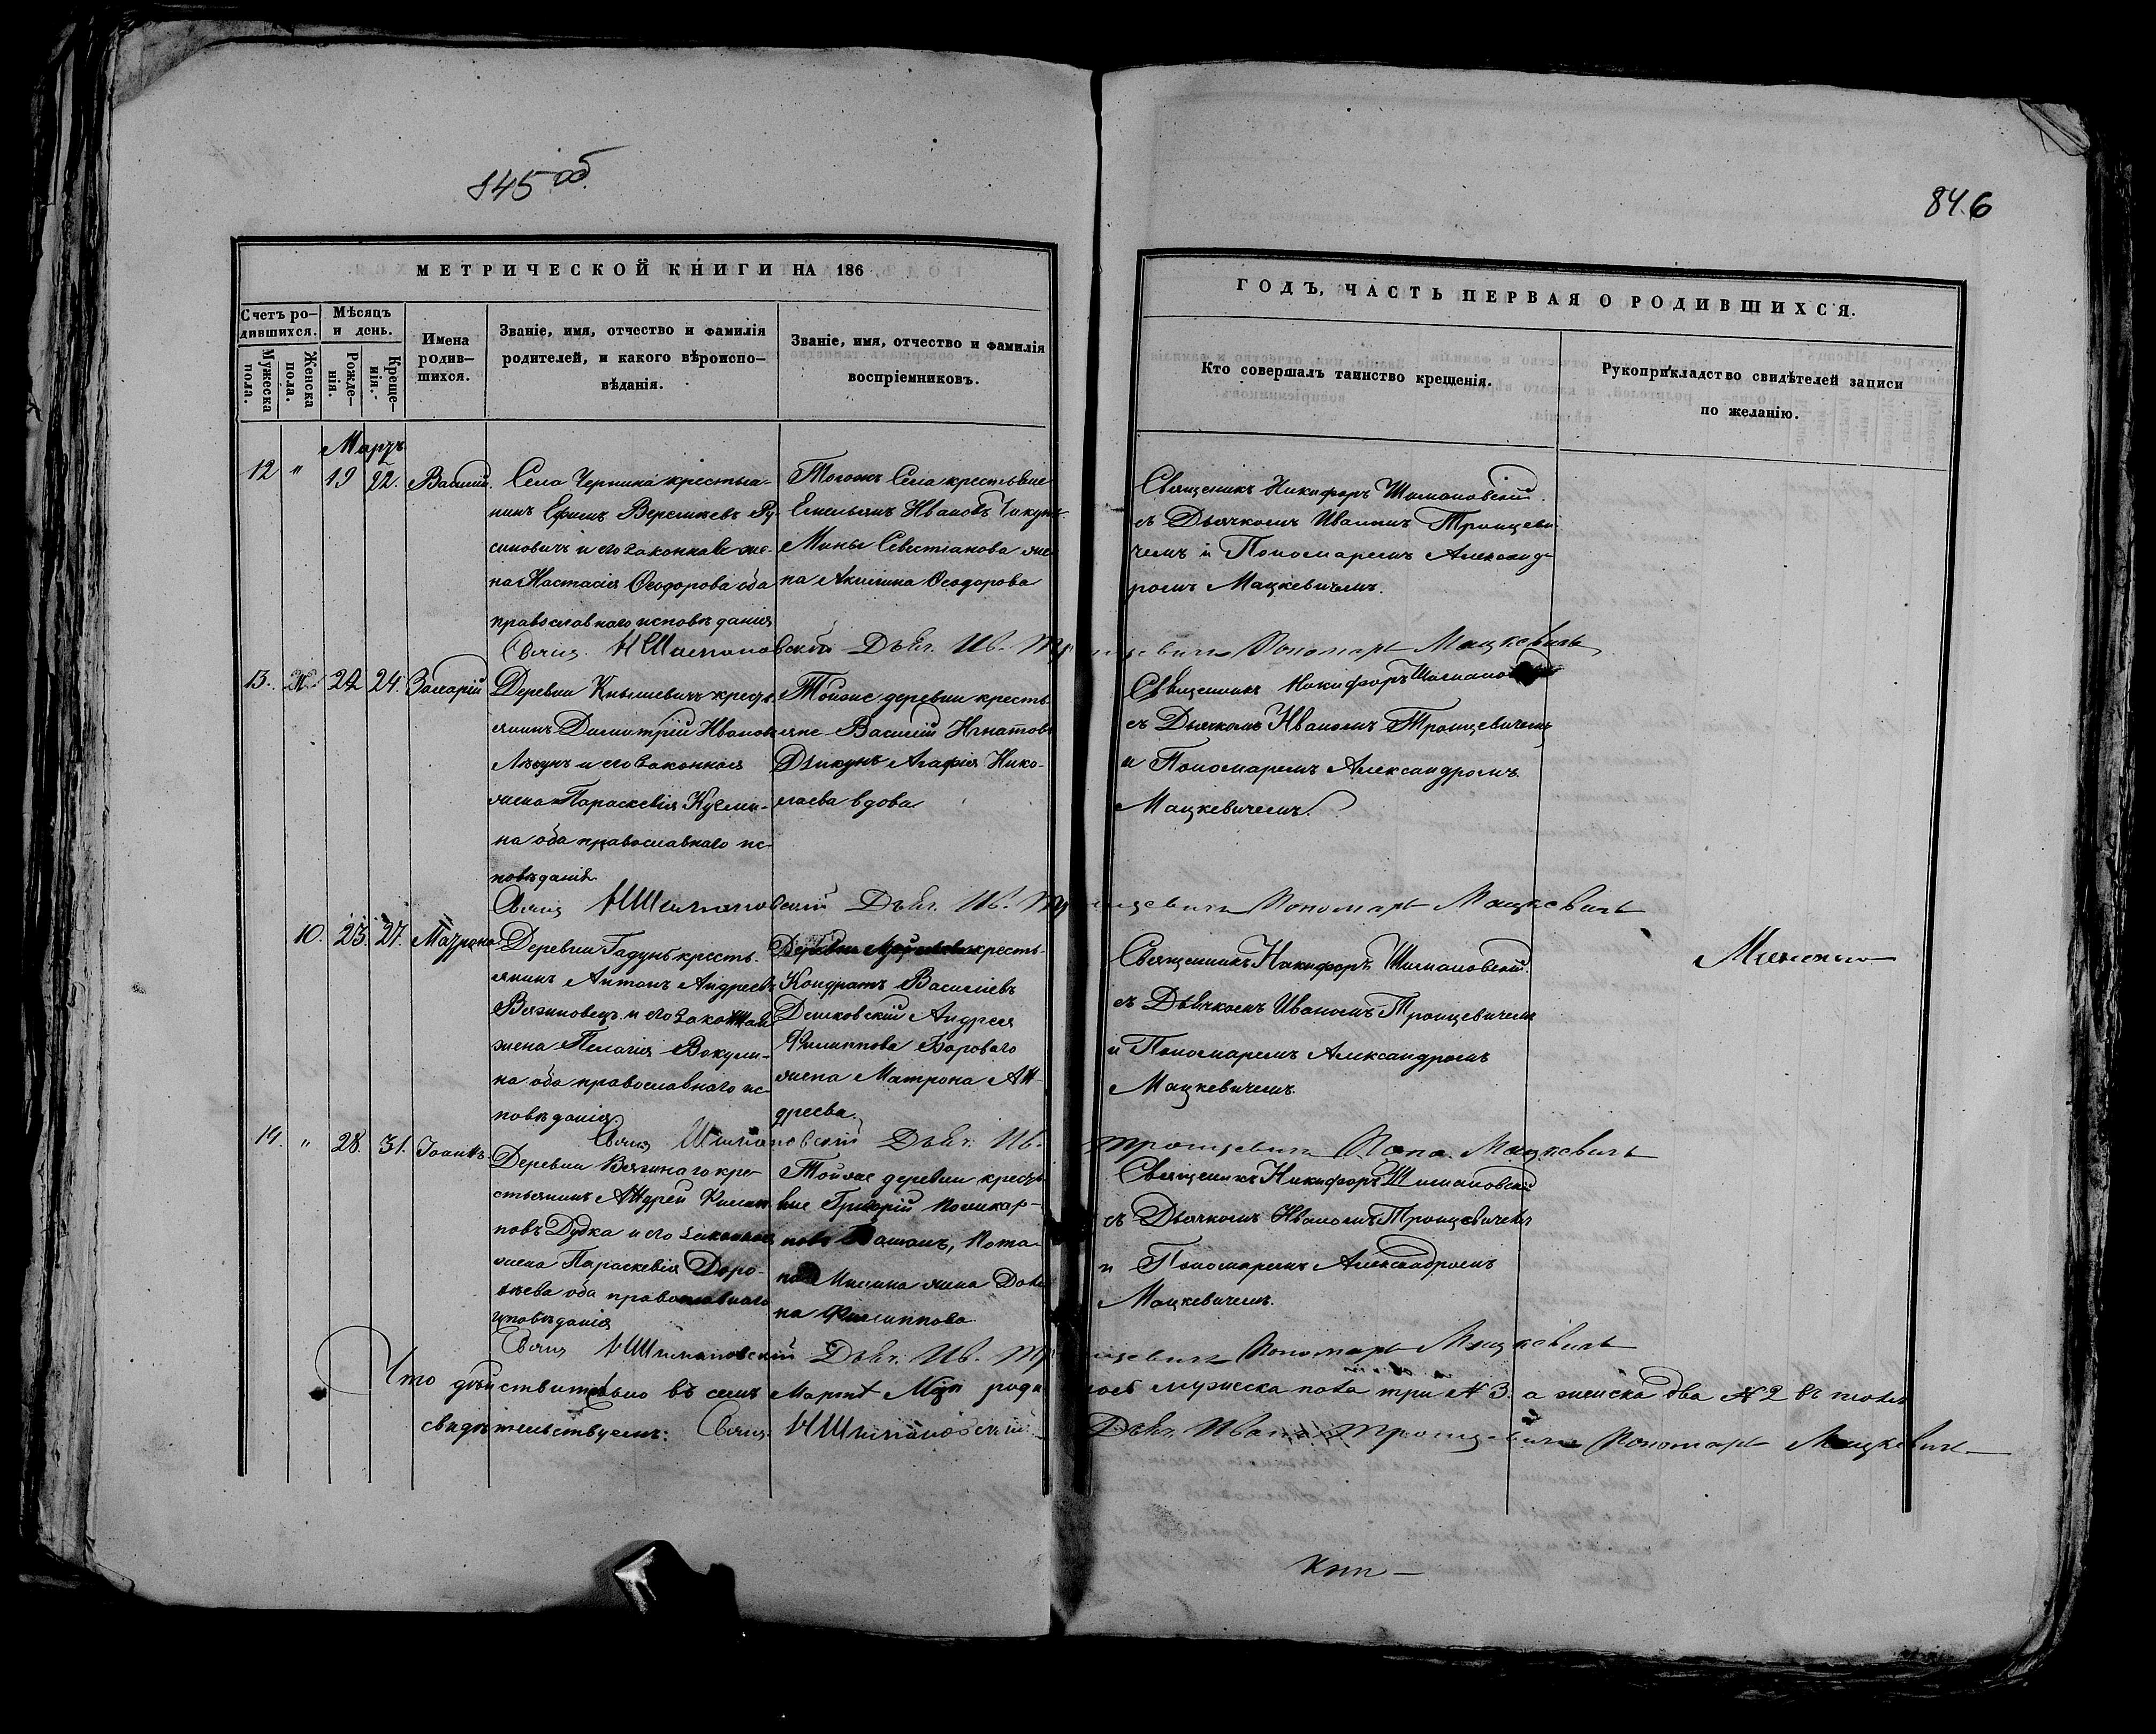 845 об.
846
МЕТРИЧЕСКОЙ КНИГИ НА 186
ГОДЪ, ЧАСТЬ ПЕРВАЯ О РОДИВШИХСЯ.
Счетъ ро-
дившихся.
Мужеска
пола.
Женска
пола.
Мѣсяцъ
и день.
Рожде-
нія.
Креще-
нія.
Имена
родив-
шихся.
Званіе, имя, отчество и фамилія
родителей, и какого вѣроиспо-
вѣданія.
Званіе, имя, отчество и фамилія
воспріемниковъ.
Кто совершалъ таинство крещенія.
Рукоприкладство свидѣтелей записи
по желанію.
Мартъ
12 " 19 22. Василій.
Села Чернина крестья-
нинъ Ефимъ
и его законная же-
на Настасія Ѳеодорова оба
православнаго исповѣданія
Тогожъ Села крестьяне
Емельянъ Ивановъ
Мины Севестіанова же-
на Акилина Ѳеодорова
Священикъ Никифоръ Шимановскій
съ Дьячкомъ Иваномъ Тронцеви-
чемъ и Пономаремъ Александ-
ромъ Мацкевичемъ.
Свящ. Н Шимановскій Дьяч. Ив. Тронцевичь Пономарь Мацкевичь
13. 22 24.
Деревни крест-
янинъ Димитрій Ивановъ
и его законная
жена Параскевія
на оба православнаго ис-
повѣданія
Тойже деревни кресть-
яне Василій Игнатовъ
Дзикунъ Агафія Нико-
лаева вдова
Священикъ Никифоръ
съ Дьячкомъ Иваномъ Тронцевичемъ
и Пономаремъ Александромъ
Мацкевичемъ.
Свящ Н Шимановскій Дьяч. Ив. Тронцевичь Пономарь Мацкевичь
10. 23. 27. Матрона
Деревни Гадунь кресть-
янинъ Антонъ Андреевъ
и его законная
жена Пелагія
на оба православнаго ис-
повѣданія.
Деревни кресть-
Кондратъ Василіевъ
Андрея
Филиппова Бороваго
жена Матрона Ан-
дреева.
Священикъ Никифоръ Шимановскій.
съ Дьячкомъ Иваномъ Тронцевичемъ
и Пономаремъ Александромъ
Мацкевичемъ.
Свящ Шимановскій Дьяч. Ив. Тронцевичь Поно. Мацкевичь
14. " 28. 31. Іоаннъ.
Деревни кре-
стьянинъ Андрей Филип-
повъ Дудка и его законная
жена Параскевія Доро-
ѳѣева оба православнаго
исповѣданія
Тойже деревни крест-
яне Григорій Поликар-
повъ
жена Дом-
на Филиппова
Священикъ Никифоръ Шимановскій
съ Дьячкомъ Иваномъ Тронцевичемъ
и Пономаремъ Александромъ
Мацкевичемъ.
Свящ Н Шимановскій Дьяч. Ив. Тронцевичь Пономарь Мацкевичь
Что дѣйствительно въ семъ Мартѣ родилось мужеска пола три № 3. а женска два № 2 въ томъ
свидѣтельствуемъ: Свящ. Н Шимановскій Дьяч. Иванъ Тронцевичь Пономарь Мацкевичь